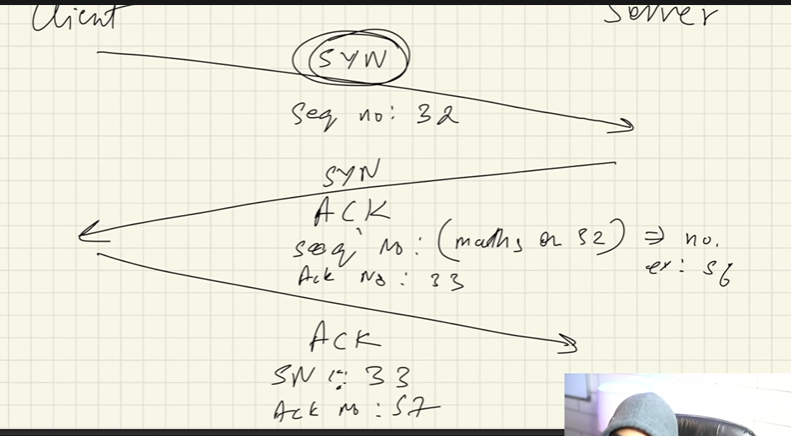 Client
Server
SYN
Seq no: 32
SYN
ACK
seq No: (maths on 32) ⇒ no.
ex: 56
Ack No: 33
ACK
SN : 33
Ack no: 57